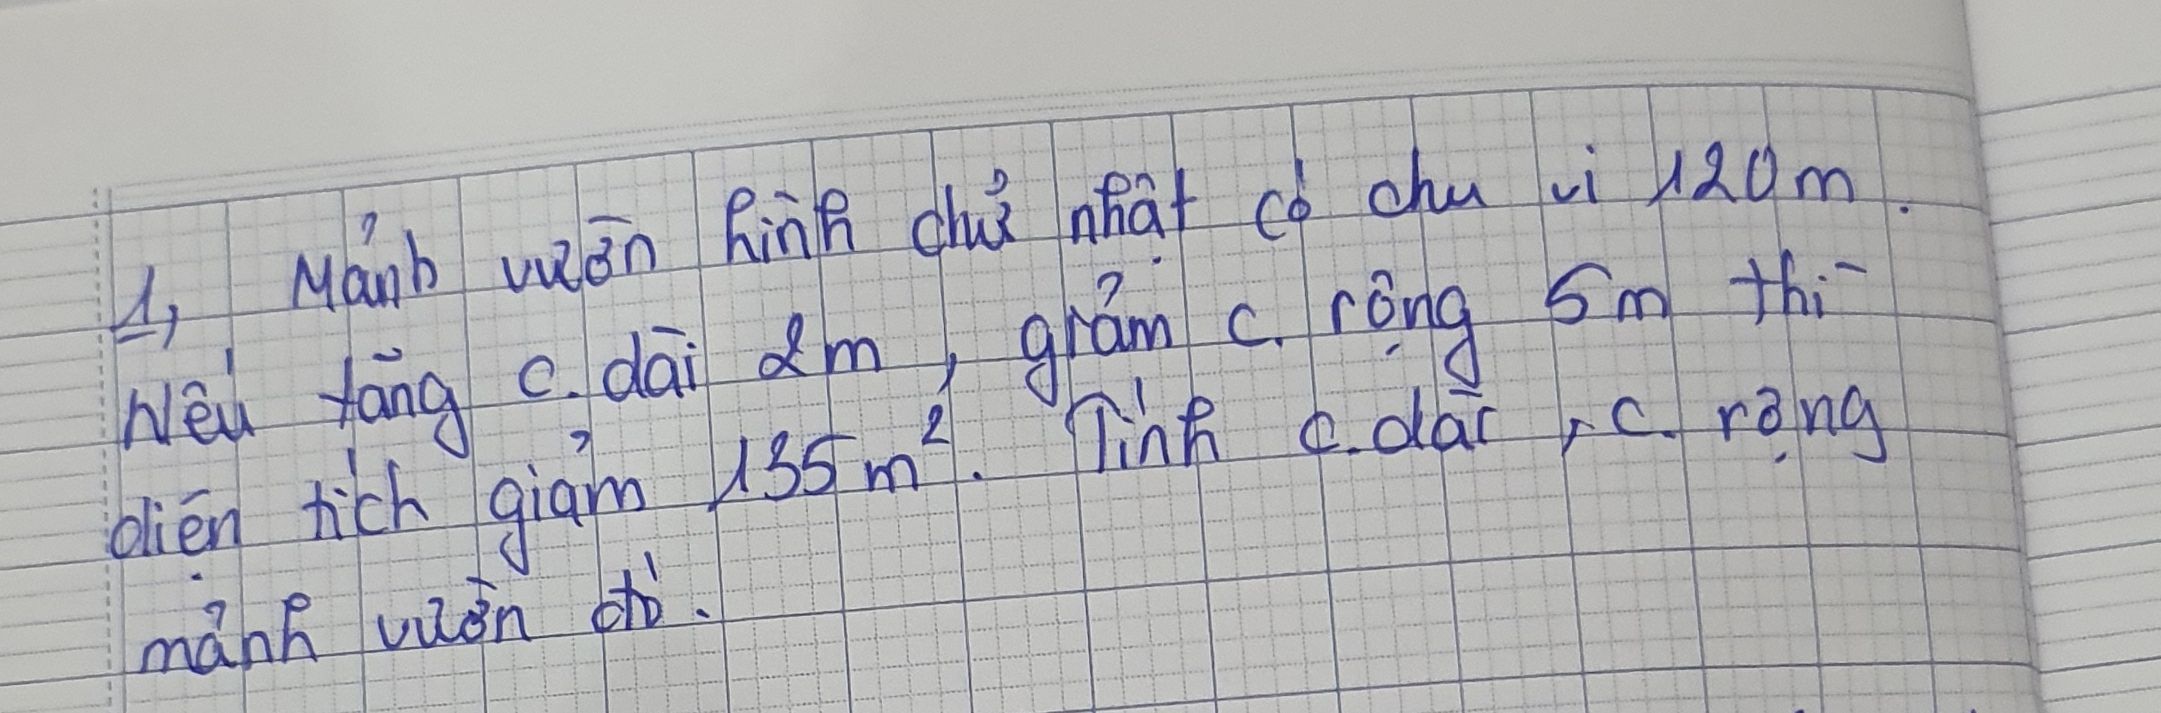 1, Mảnh vườn hình chữ nhật có chu vi 120m.
Nếu tăng c. dài 2m, giảm c. rộng 5m thì
diện tích giảm 135m². Tính c. dài, c. rộng
mảnh vườn đó.